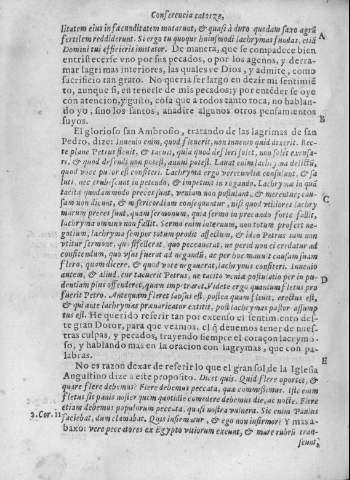 Conferencia catorze,
litatem eius in fæcunditatem mutarunt, & quasi à duro quodam saxo agrũ
fertilem reddiderunt. Si ergo tu quoque huiusmodi lachrymas fundas, etiã
Domini tui efficieris imitator. De manera, que se compadece bien
entristecerse vno por sus pecados, o por los agenos, y derra-
mar lagrimas interiores, las quales ve Dios, y admite, como
sacrificio tan grato. No querria ser largo en dezir mi sentimiẽ
to, aunque si, en tenerle de mis pecados; y por entẽder se oye
con atencion, y gusto, cosa que a todos tanto toca, no hablan-
do yo, sino los santos, añadire algunos otros pensamientos
suyos.
El glorioso san Ambrosio, tratando de las lagrimas de san
Pedro, dize: Inuenio enim, quod fleuerit, non inuenio quid dixerit. Rec-
te plane Petrus fleuit, & tacuit, quia quod defleri solet, non solet excusa-
ri, & quod defendi non potest, ignosci potest. Lauat enim lachryma delictũ,
quod voce pudor est confiteri. Lachryma ergo verecundiæ consulunt, & sa
luti, nec erubescunt in petendo, & impetrant in rogando. Lachrymæ in quã
tacita quodammodo preces sunt, veniam non postulant, & merentur; cau-
sam non dicunt, & misericordiam consequuntur, nisi quod vtiliores lachry
marum preces sunt, quam sermonum, quia sermo in precando forte fallit,
lachryma omnino non fallit. Sermo enim interdum, non totum profert ne-
gotium, lachryma semper totum prodit affectum, & ideo Petrus iam non
vtitur sermone, quo fefellerat, quo peccauerat, ne per id non ei credatur ad
confitendum, quo vsus fuerat ad negandũ, ac per hoc mauult causam suam
flere, quam dicere, & quod voce negauerat, lachrymis confiteri. Inuenio
autem, & aliud, cur tacuerit Petrus, ne tacita veniæ postulatio per in pu-
dentiam plus offenderet, quam impetraret. Videte ergo quantum fletus pro
fuerit Petro. Antequam fleret lapsus est, postea quam fleuit, erectus est,
& qui ante lachrymas præuaricator extitit, post lachrymas pastor assump
tus est. He querido referir tan por extenso el sentimiento des-
te gran Dotor, para que veamos, el q̃ deuemos tener de nues-
tras culpas, y pecados, trayendo siempre el coraçon lacrymo-
so, y hablando mas en la oracion con lagrymas, que con pa-
labras.
No es razon dexar de referir lo que el gran sol de la Iglesia
Augustino dize a este proposito. Dicet quis. Quid flere oportet, &
quare flere debemus? Flere debemus peccata, quæ commisimus. Iste enim
fletus sit panis noster quem quotidie comedere debemus die, ac nocte. Flere
etiam debemus populorum peccata, quasi nostra vulnera. Sic enim Paulus
2. Cor. 11. faciebat, dum clamabat. Quis infirmatur, & ego non infirmor? Y mas a-
baxo: vere peccatores ex Egypto vitiorum exeunt, & mare rubrũ tran-
seunt
A
B
C
D
E